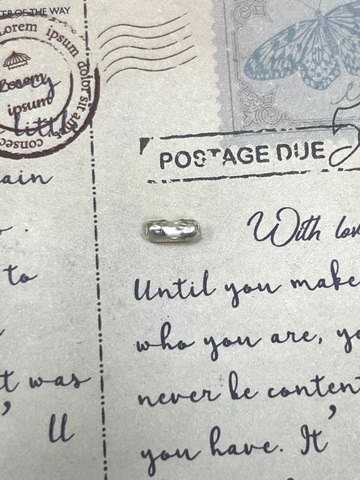 ER OF THE WAY
Lorem ipsum dolor sit amet
consec
Lorem
ipsum
little
POSTAGE DUE
ain
With lov
to
Until you make
who you are, yo
t was
never be content
' ll
you have. It'